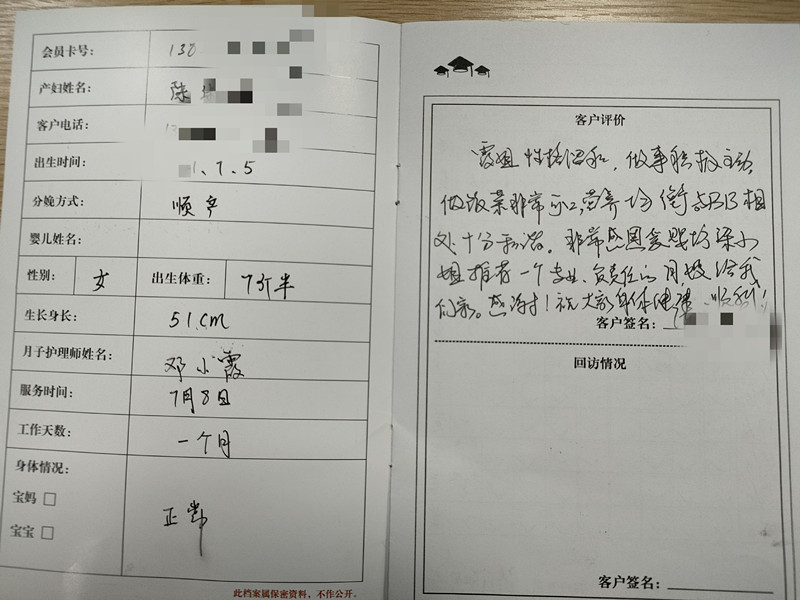 会员卡号: 138
产妇姓名: 陈
客户电话:
出生时间: 1.7.5
分娩方式: 顺产
婴儿姓名:
性别: 女 出生体重: 7斤半
生长身长: 51cm
月子护理师姓名: 邓小霞
服务时间: 7月8日
工作天数: 一个月
身体情况:
宝妈 □
宝宝 □
正常
此档案属保密资料，不作公开。
客户评价
霞姐性格温和，做事积极主动，
做饭菜非常可口，营养均衡，与BB相
处十分融洽。非常感恩爱婴坊梁小
姐推荐一个专业、负责任的月嫂给我
们家。感谢！祝大家身体健康、顺利！！
客户签名:
回访情况
客户签名: